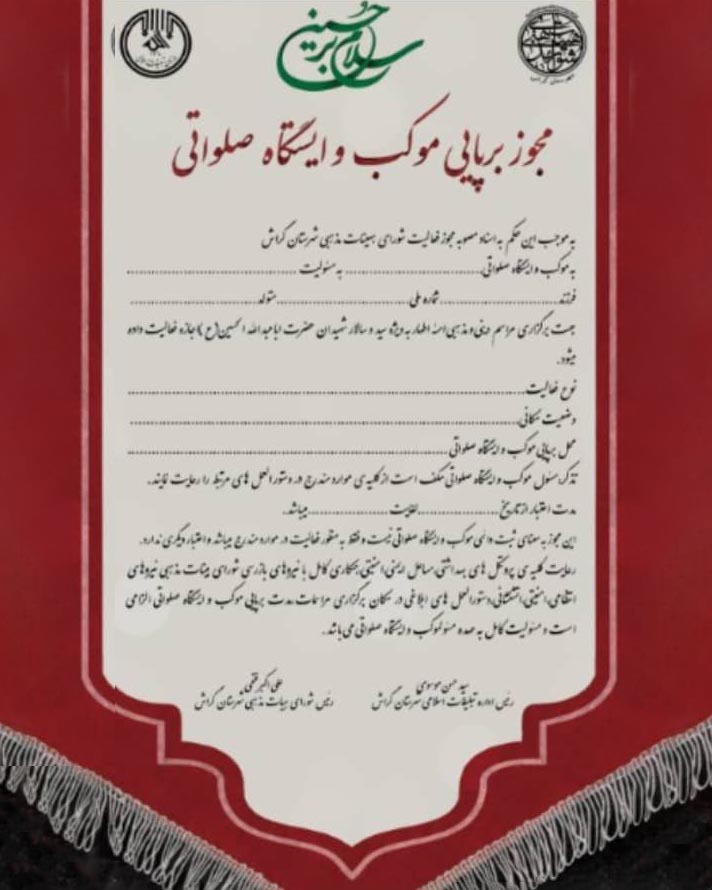 سلام بر حسین
مجوز برپایی موکب و ایستگاه صلواتی
به موجب این حکم به اسناد مصوبه مجوز فعالیت شورای هیئات مذهبی شهرستان گراش
به موکب و ایستگاه صلواتی.............................. به مسئولیت ..............................
فرزند.................... شماره ملی.............................. متولد..............................
جهت برگزاری مراسم دینی و مذهبی ائمه اطهار به ویژه سید و سالار شهیدان حضرت اباعبدالله الحسین(ع) اجازه فعالیت داده
میشود.
نوع فعالیت............................................................
وضعیت مکانی............................................................
محل برپایی موکب و ایستگاه صلواتی............................................................
تذکر: مسئول موکب و ایستگاه صلواتی مکلف است از کلیه ی موارد مندرج در دستورالعمل های مرتبط را رعایت نمایند.
مدت اعتبار از تاریخ....................لغایت....................میباشد.
این مجوز به معنای ثبت دائمی موکب و ایستگاه صلواتی نیست و فقط به منظور فعالیت در موارد مندرج میباشد و اعتبار دیگری ندارد.
رعایت کلیه ی پروتکل های بهداشتی،مسائل ایمنی،امنیتی،همکاری کامل با نیروهای بازرسی شورای هیئات مذهبی نیروهای
انتظامی،امنیتی،انتظاماتی،دستورالعمل های ابلاغی در مکان برگزاری مراسمات،مدت برپایی موکب و ایستگاه صلواتی الزامی
است و مسئولیت کامل به عهده مسئول موکب و ایستگاه صلواتی می باشد.
سید حسن موسوی
رئیس اداره تبلیغات اسلامی شهرستان گراش
علی اکبر فتحی
رئیس شورای هیئات مذهبی شهرستان گراش